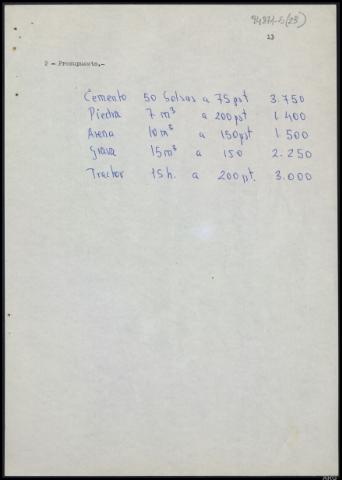 13
2 - Presupuesto.-
Cemento 50 bolsas a 75 pst 3.750
Piedra 7 m³ a 200 pst 1.400
Arena 10 m³ a 150 pst 1.500
Grava 15 m³ a 150 2.250
Tractor 15 h. a 200 pt. 3.000